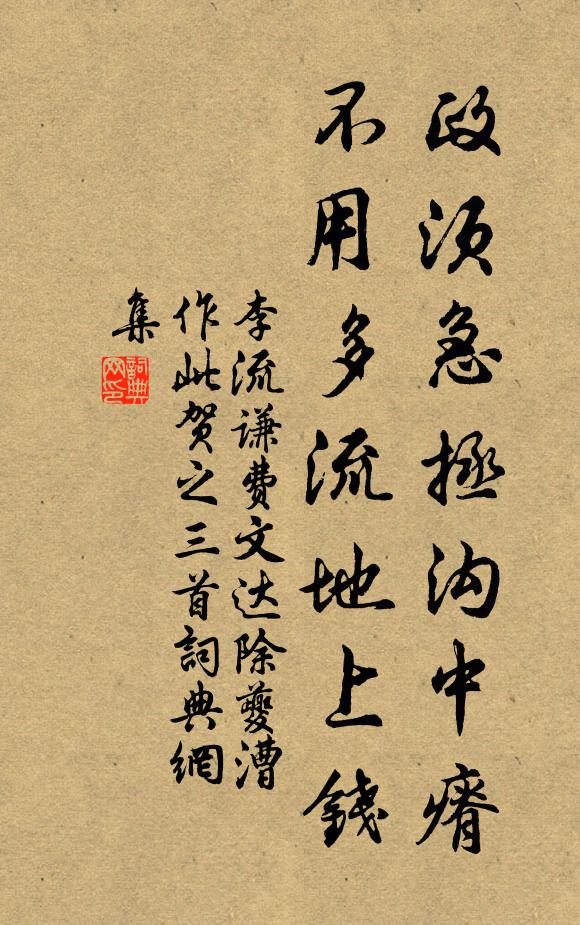 政须急拯沟中瘠
不用多流地上錢
李流谦费文达除夔漕
作此贺之三首詞典網
集
詞典
网印